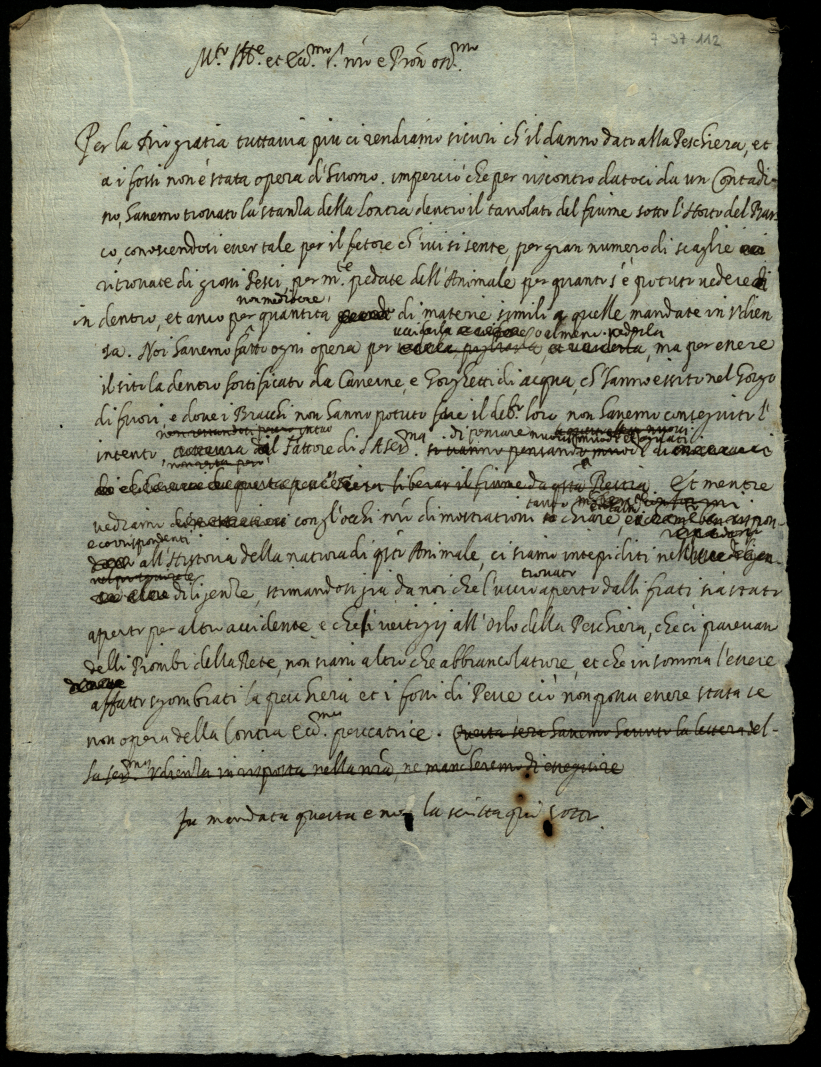 7-37-112
M.to Ill.e et Ecc.mo S.r n̅ro e Pron̅ oss.mo
Per la Dio gratia tuttavia piu ci rendiamo sicuri ch'il danno dato alla Peschiera, et
a i fossi non è stata opera d'huomo. imperciò che per riscontro datoci da un Contadi-
no, hanemo trovato la stanza della Lontra dentro il tavolato del fiume sotto l'Horto del Bar
co, conoscendosi esser tale per il fetore ch'ivi si sente, per gran numero di scaglie
ritrovate di grossi Pesci, per m.te pedate dell'Animale per quanto s'è potuto vedere di
non mediocre
in dentro, et anco per quantità di materie simili a quelle mandate in Udien
ucciderla o almeno vederla
za. Noi hanemo fatto ogni opera per , ma per essere
il sito la dentro fortificato da Caverne, e Gorghetti di acqua, ch'hanno esito nel Gorgo
di fuori, e dove i Bracchi non hanno potuto fare il deb.o loro non hanemo conseguito l'
intento al fattore di S. A. Ser.ma di pensare
liberar il fiume da q̅sta Bestia Et mentre
vediamo con gl'occhi n̅ri dimostrationi chiare,
e corrispondenti
all'Historia della natura di q̅sto Animale, ci siamo intepiditi nell'
trovato
altre diligenze, stimandosi già da noi che l'uscio aperto dalli frati sia stato
aperto per altro accidente, e che i vestigij all'Orlo della Peschiera, che ci parevan
delli Piombi della Rete, non siano altro che abbrancolature, et che in somma l'essere
affatto sgombrati la peschiera et i fossi di Pesce ciò non possa essere stata se
non opera della Lontra Ecc.ma peccatrice. Questa sera hanemo havuto la lettera del-
la Ser.ma Udienza in risposta nella n̅ra, ne mancheremo di esseguire
fu mandata questa e non la scritta qui sotto.